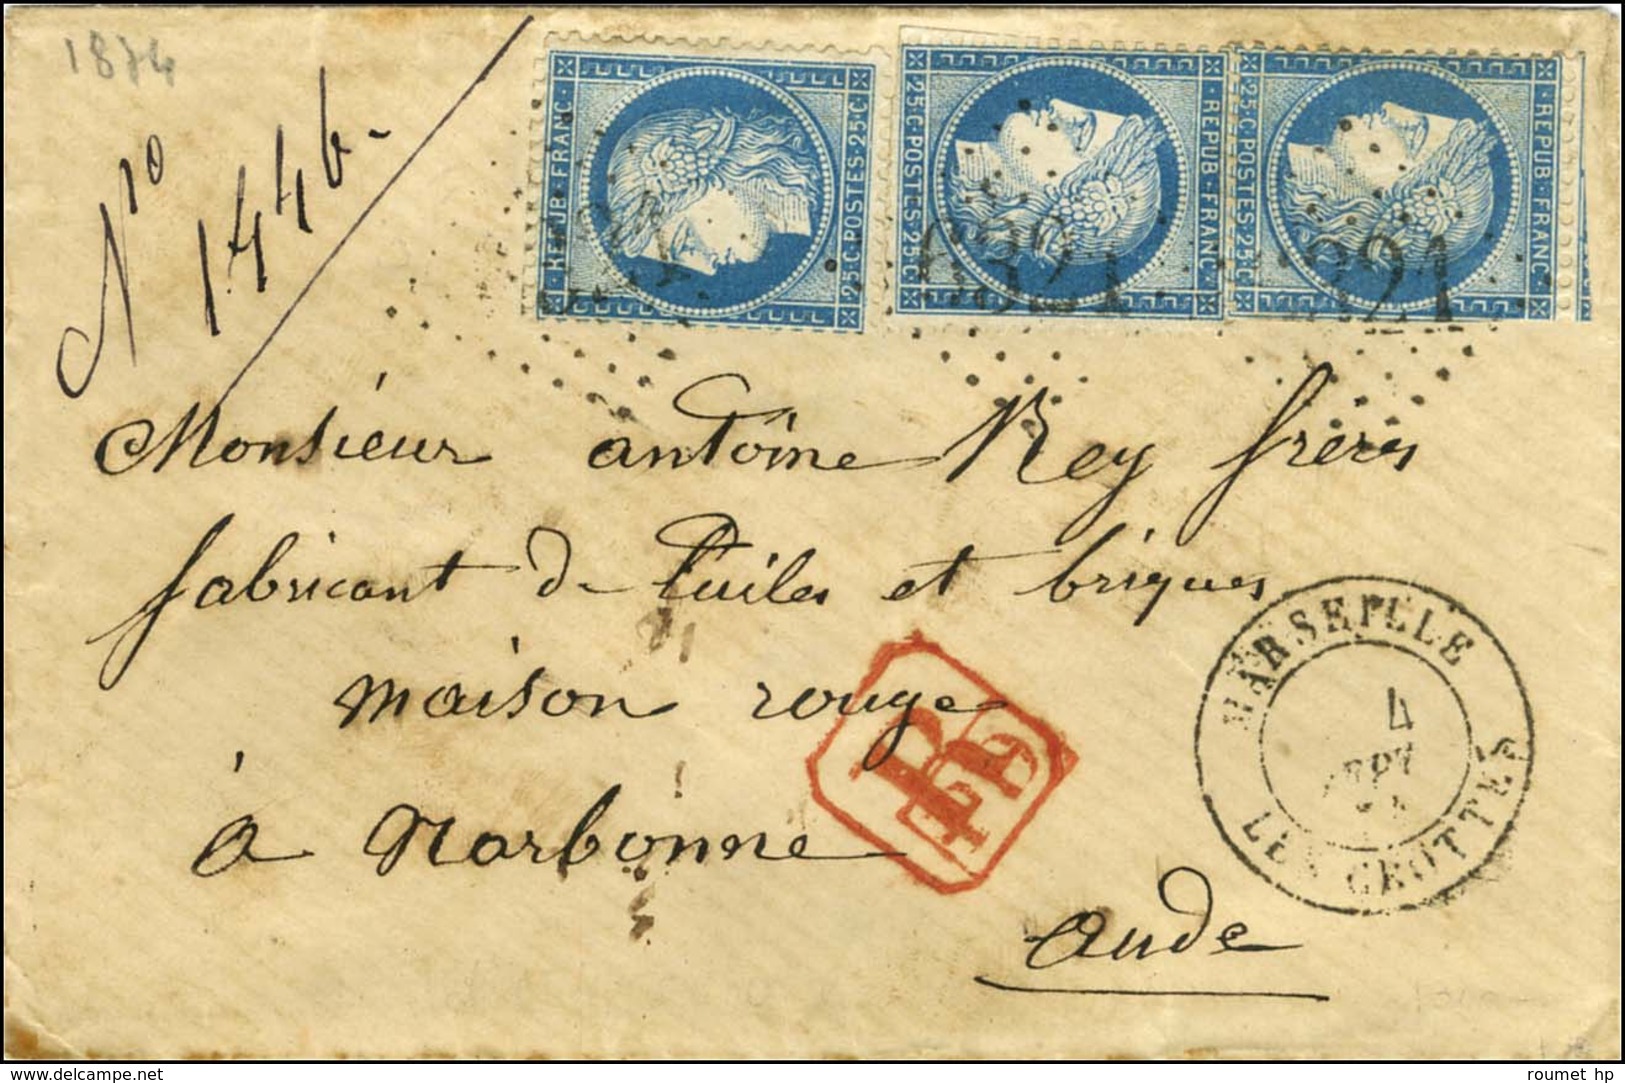 1874
N° 1446
REPUB·FRANC·
25 C. POSTES 25 C.
25 C. POSTES 25 C.
REPUB·FRANC·
25 C. POSTES 25 C.
REPUB·FRANC·
6321
Monsieur antoine Rey frères
fabricant de Tuiles et briques
maison rouge
à Narbonne
Aude
MARSEILLE
4
SEPT
LES CROTTES
www.delcampe.net
roumet hp